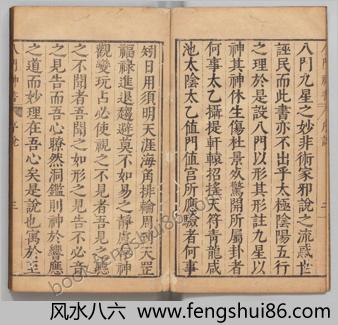 八門九星之妙非術家邪說之流惑世
誣民而此書亦不出乎太極陰陽五行
之理於是設八門以其形註九星以
神其神休生傷杜景死驚開所屬卦者
何事太乙攝提軒轅招搖天符青龍咸
池太陰太乙值門值宮所應驗者何事
矧日用須明天涯海角排輪周到天罡
福祿進退趨避莫不如易之靜虛存神
觀變玩占必使視之不見者吾見之聽
之不聞者吾聞之如形之見告不必音
之見告而吾心瞭然洞鑑則神於響應
之道而妙理在吾心矣是說也寓於至
八門神書
序說
二
風水八六 www.fengshui86.com